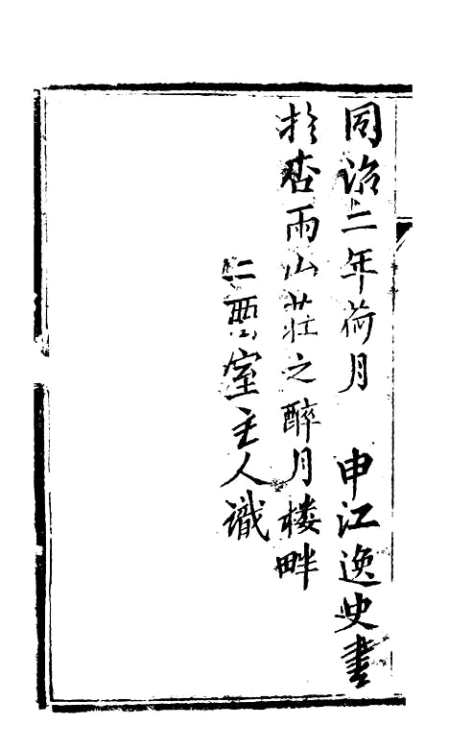 同治二年荷月　申江逸史書
於杏雨山莊之醉月楼畔
二雲室主人識